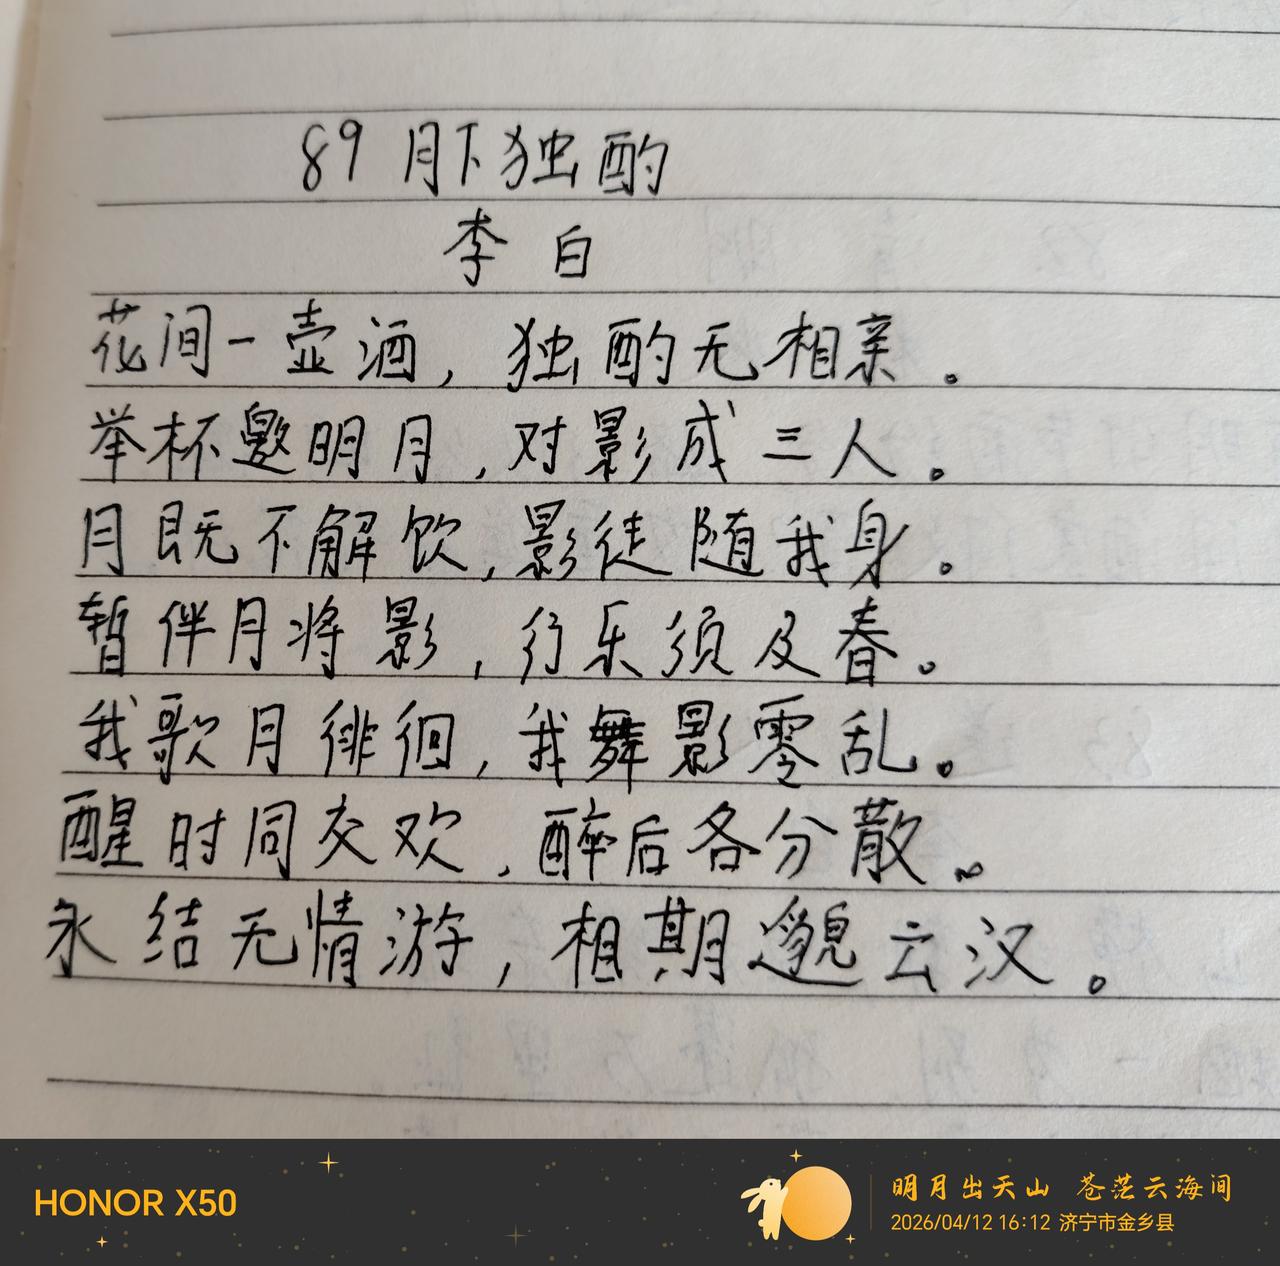 89 月下独酌
李白
花间一壶酒，独酌无相亲。
举杯邀明月，对影成三人。
月既不解饮，影徒随我身。
暂伴月将影，行乐须及春。
我歌月徘徊，我舞影零乱。
醒时同交欢，醉后各分散。
永结无情游，相期邈云汉。
HONOR X50
明月出天山 苍茫云海间
2026/04/12 16:12 济宁市金乡县